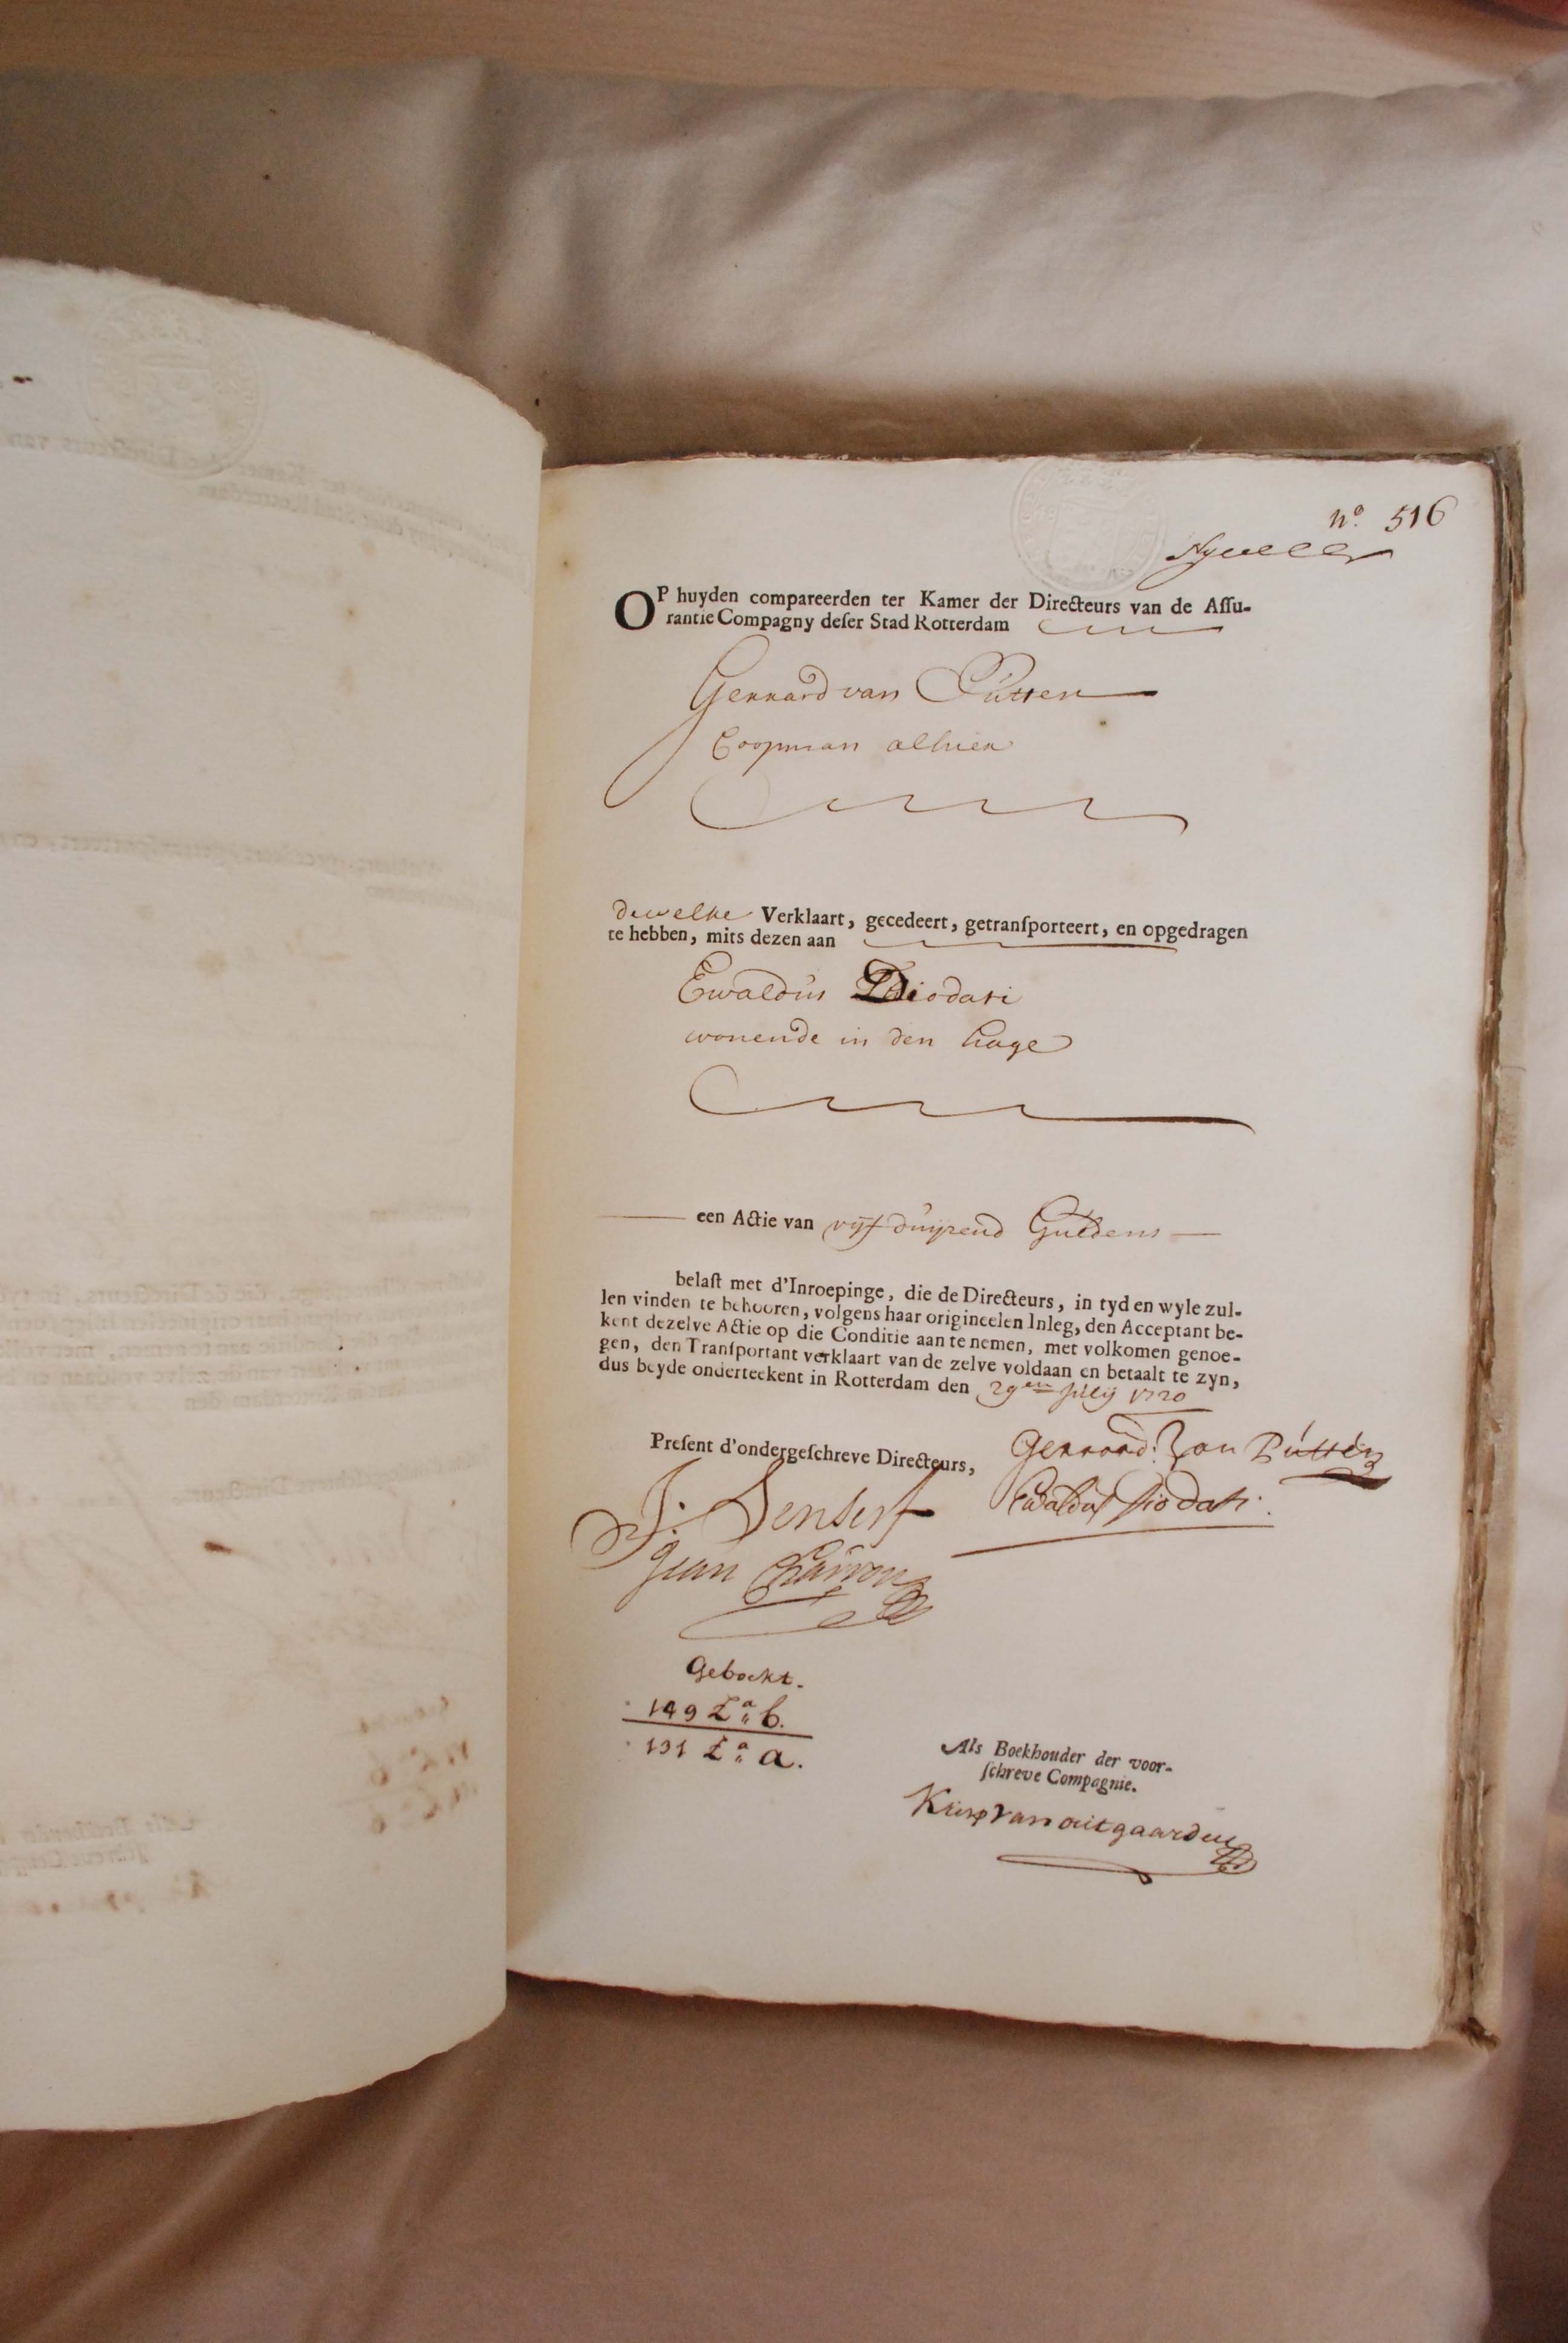 nº. 516
OP huyden compareerden ter Kamer der Directeurs van de Assu-
rantie Compagny deser Stad Rotterdam
Gerrard van Putten
Coopman alhier
dewelke Verklaart, gecedeert, getransporteert, en opgedragen
te hebben, mits dezen aan
Ewaldus Diodati
wonende in den hage
een Actie van vijf duijzend Guldens
belast met d'Inroepinge, die de Directeurs, in tyd en wyle zul-
len vinden te behooren, volgens haar origineelen Inleg, den Acceptant be-
kent dezelve Actie op die Conditie aan te nemen, met volkomen genoe-
gen, den Transportant verklaart van de zelve voldaan en betaalt te zyn,
dus beyde onderteekent in Rotterdam den 29en July 1720
Present d'ondergeschreve Directeurs,
Gerrard: van Putten
Ewaldus Diodati.
J. Senserf
Jean Charron
Geboekt.
149 La b.
131 La a.
Als Boekhouder der voor-
schreve Compagnie.
van outgaarden